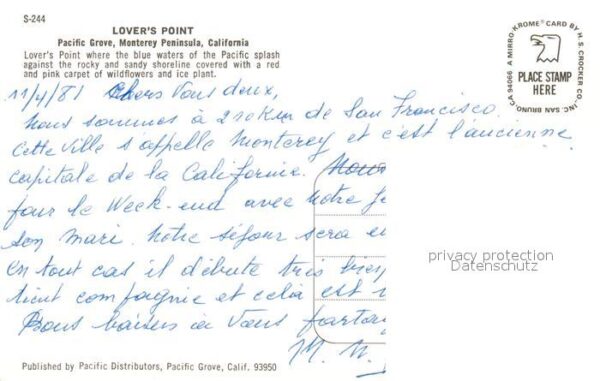 S-244
LOVER'S POINT
Pacific Grove, Monterey Peninsula, California
Lover's Point where the blue waters of the Pacific splash
against the rocky and sandy shoreline covered with a red
and pink carpet of wildflowers and ice plant.
A MIRRO KROME® CARD BY H. S. CROCKER CO., INC. SAN BRUNO, CA 94066
PLACE STAMP
HERE
11/4/81 Chers Vous deux,
Nous sommes à 210 Km de San Francisco.
Cette ville s'appelle Monterey et c'est l'ancienne
capitale de la Californie.
faire le Week-end avec notre
son mari. Notre séjour sera
en tout cas il débute très bien
tient compagnie et cela est
Bons baisers à Vous
M. N.
privacy protection
Datenschutz
Published by Pacific Distributors, Pacific Grove, Calif. 93950